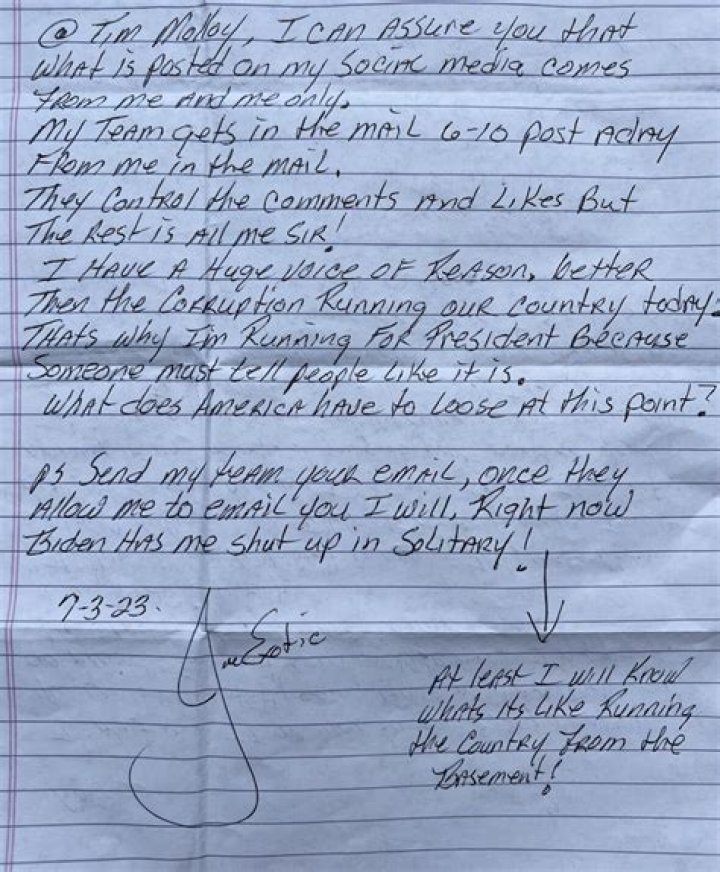 @ Tim Molloy, I can Assure you that
what is posted on my Social media comes
from me and me only.
My Team gets in the mail 6-10 post Aday
From me in the mail.
They Control the comments and Likes But
The Rest is All me Sir!
I Have A Huge voice of Reason, better
Then the Corruption Running our country today.
Thats why I'm Running For President Because
Someone must tell people like it is.
What does America have to loose At this point?
ps Send my team your email, once they
Allow me to email you I will, Right now
Biden Has me shut up in Solitary!
7-3-23.
Joe Exotic
At least I will Know
whats its like Running
the Country from the
Basement!